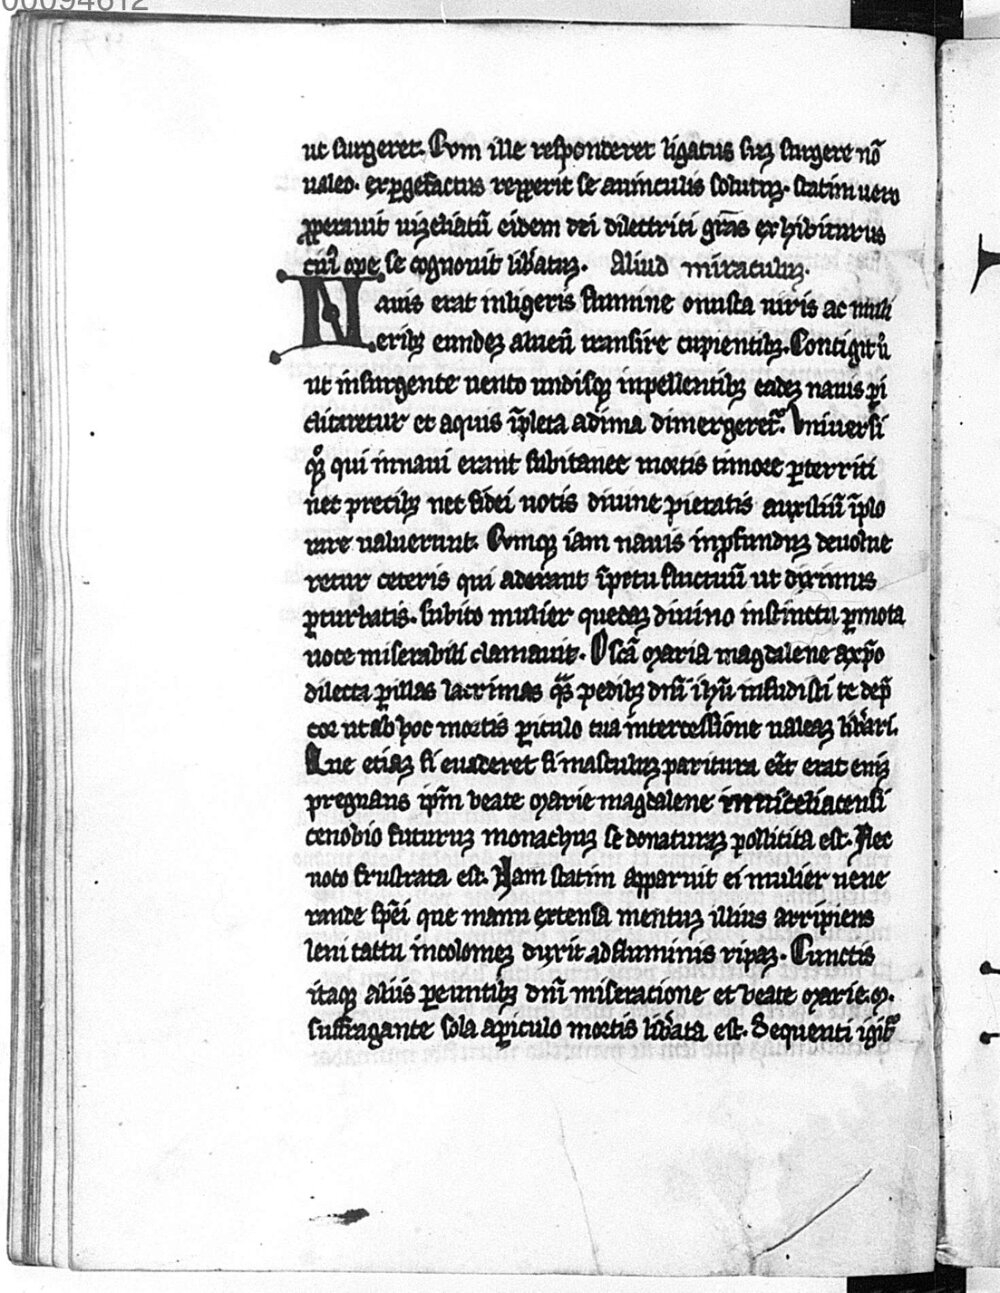 00094612
ut surgeret. Cum ille responderet ligatus suꝫ surgere nō
ualeo. exꝑgefactus repperit se a uinculis solutuꝫ. statim uero
ꝓperauit uizeliatū eidem dei dilectrici grās exhibiturus
cui᷒ ope se cognouit lib̄atuꝫ. Aliud miraculuꝫ.
Nauis erat in ligeris flumine onusta uiris ac muli
eribꝫ eundeꝫ alueū transire cupientibꝫ. Contigit u̓
ut insurgente uento undisqꝫ inpellentibꝫ eadeꝫ nauis ꝑi
clitaretur et aquis īpleta ad ima dimergeret᷑. Vniuersi
qui in naui erant subitanee mortis timore ꝑterriti
nec precibꝫ nec fidei uotis diuine pietatis auxiliū īplo
rare ualuerunt. Cumqꝫ iam nauis in ꝓfunduꝫ deuolue
retur ceteris qui aderant īpetu fluctuū ut diximus
ꝑturbatis. subito mulier quedaꝫ diuino instinctu ꝑmota
uoce miserabili clamauit. O scā maria magdalene a xp̄o
dilecta ꝑ illas lacrimas q̄s pedibꝫ dn̄i ih̄u infudisti te dep̄
cor ut ab hoc mortis ꝑiculo tua intercessione ualeaꝫ lib̄ari.
Que etiaꝫ si euaderet si masculuꝫ paritura eēt erat eniꝫ
pregnans ip̄m beate marie magdalene in uiceliacensi
cenobio futuruꝫ monachuꝫ se donaturaꝫ pollicita est. Nec
uoto frustrata est. Nam statim apparuit ei mulier uene
rande sp̄ei que manu extensa mentuꝫ illius arripiens
leni tactu incolomeꝫ duxit ad fluminis ripaꝫ. Cunctis
itaqꝫ aliis ꝑeuntibꝫ dn̄i miseratione et beate marie .m.
suffragante sola a ꝑiculo mortis lib̄ata est. Sequenti igit᷑